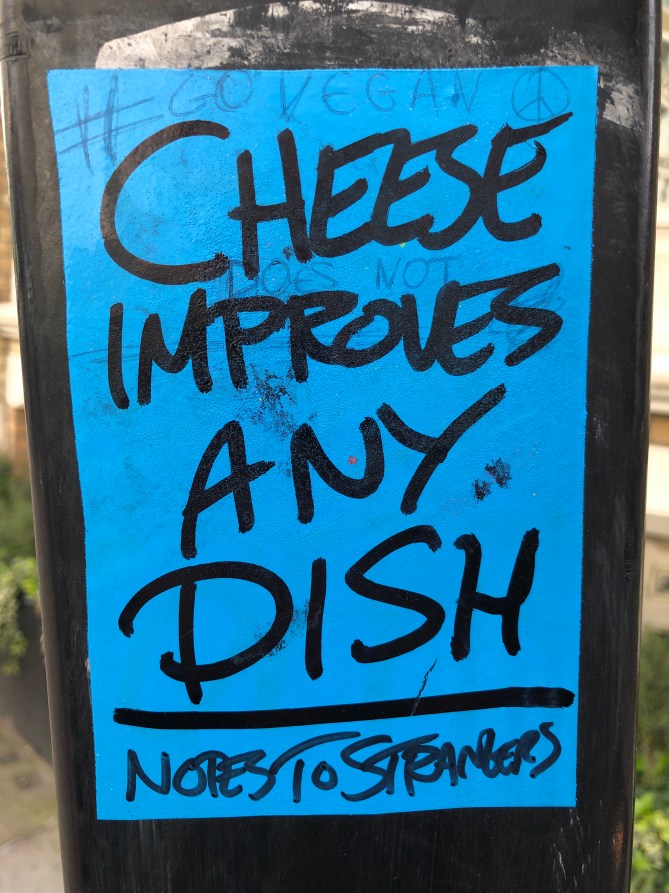 # GO VEGAN
CHEESE
DOES NOT
IMPROVES
ANY
DISH
NOTES TO STRANGERS